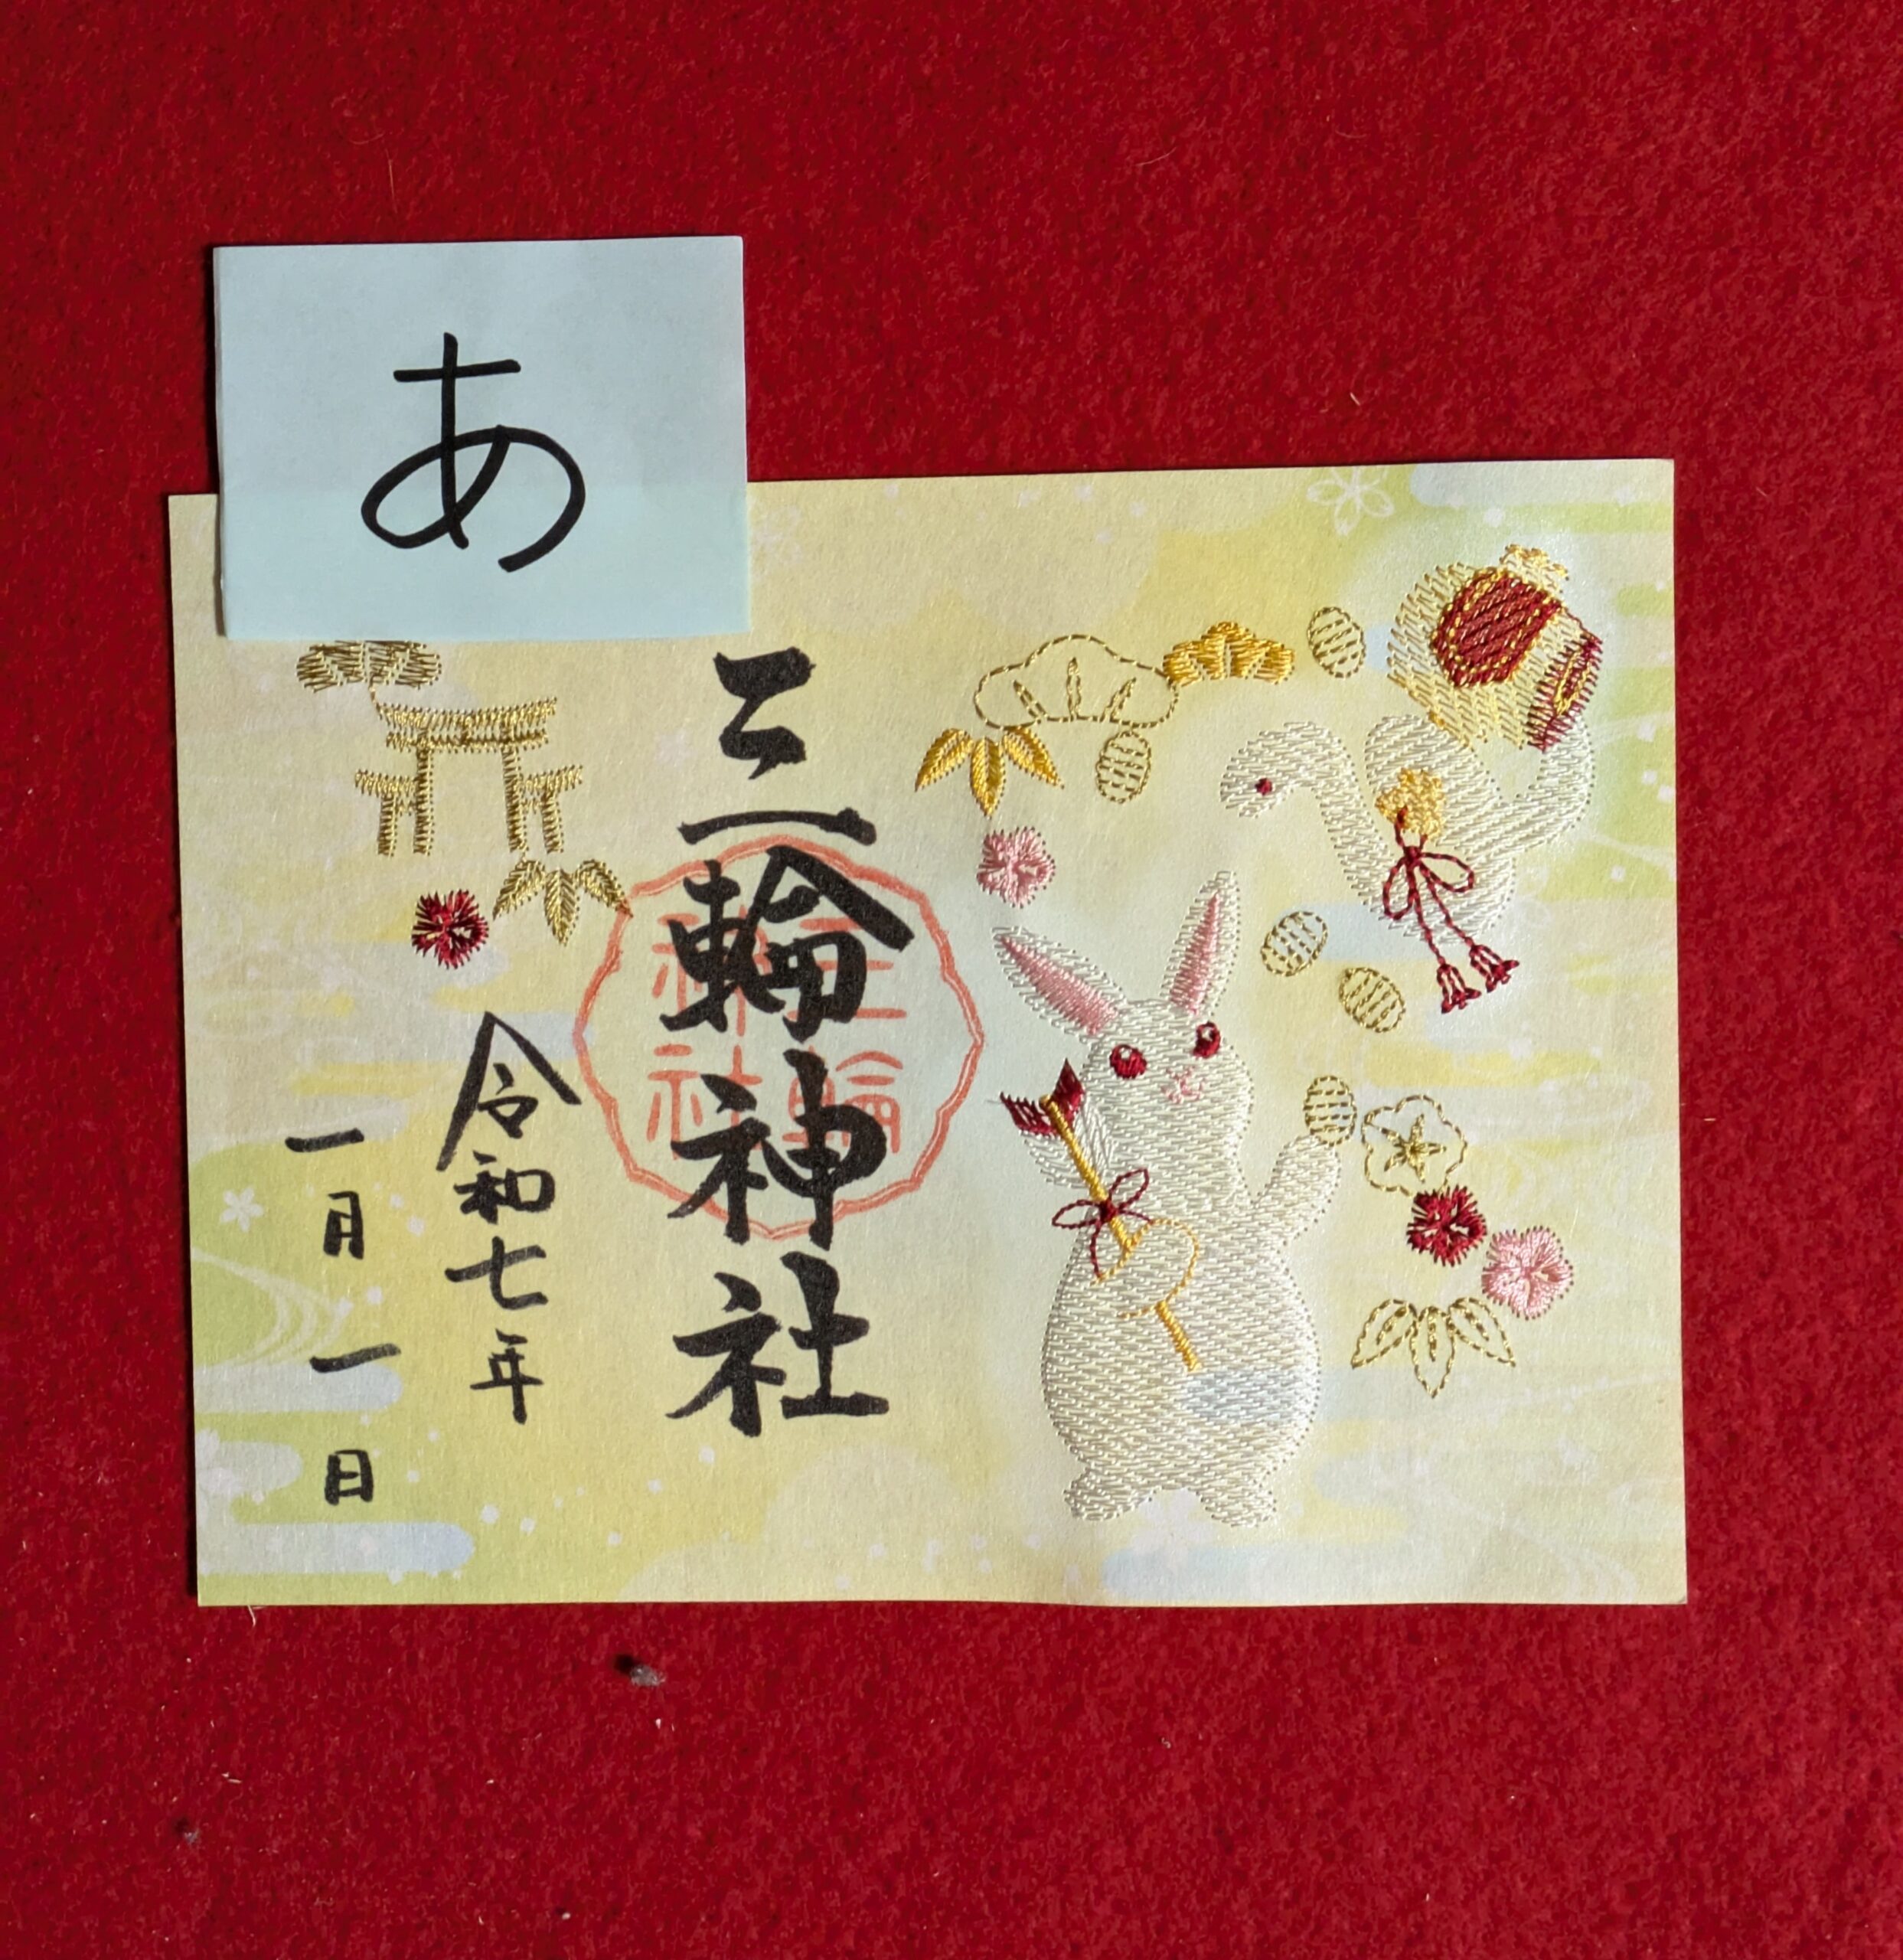 あ
三輪神社
三輪
神社
令和七年
一月一日